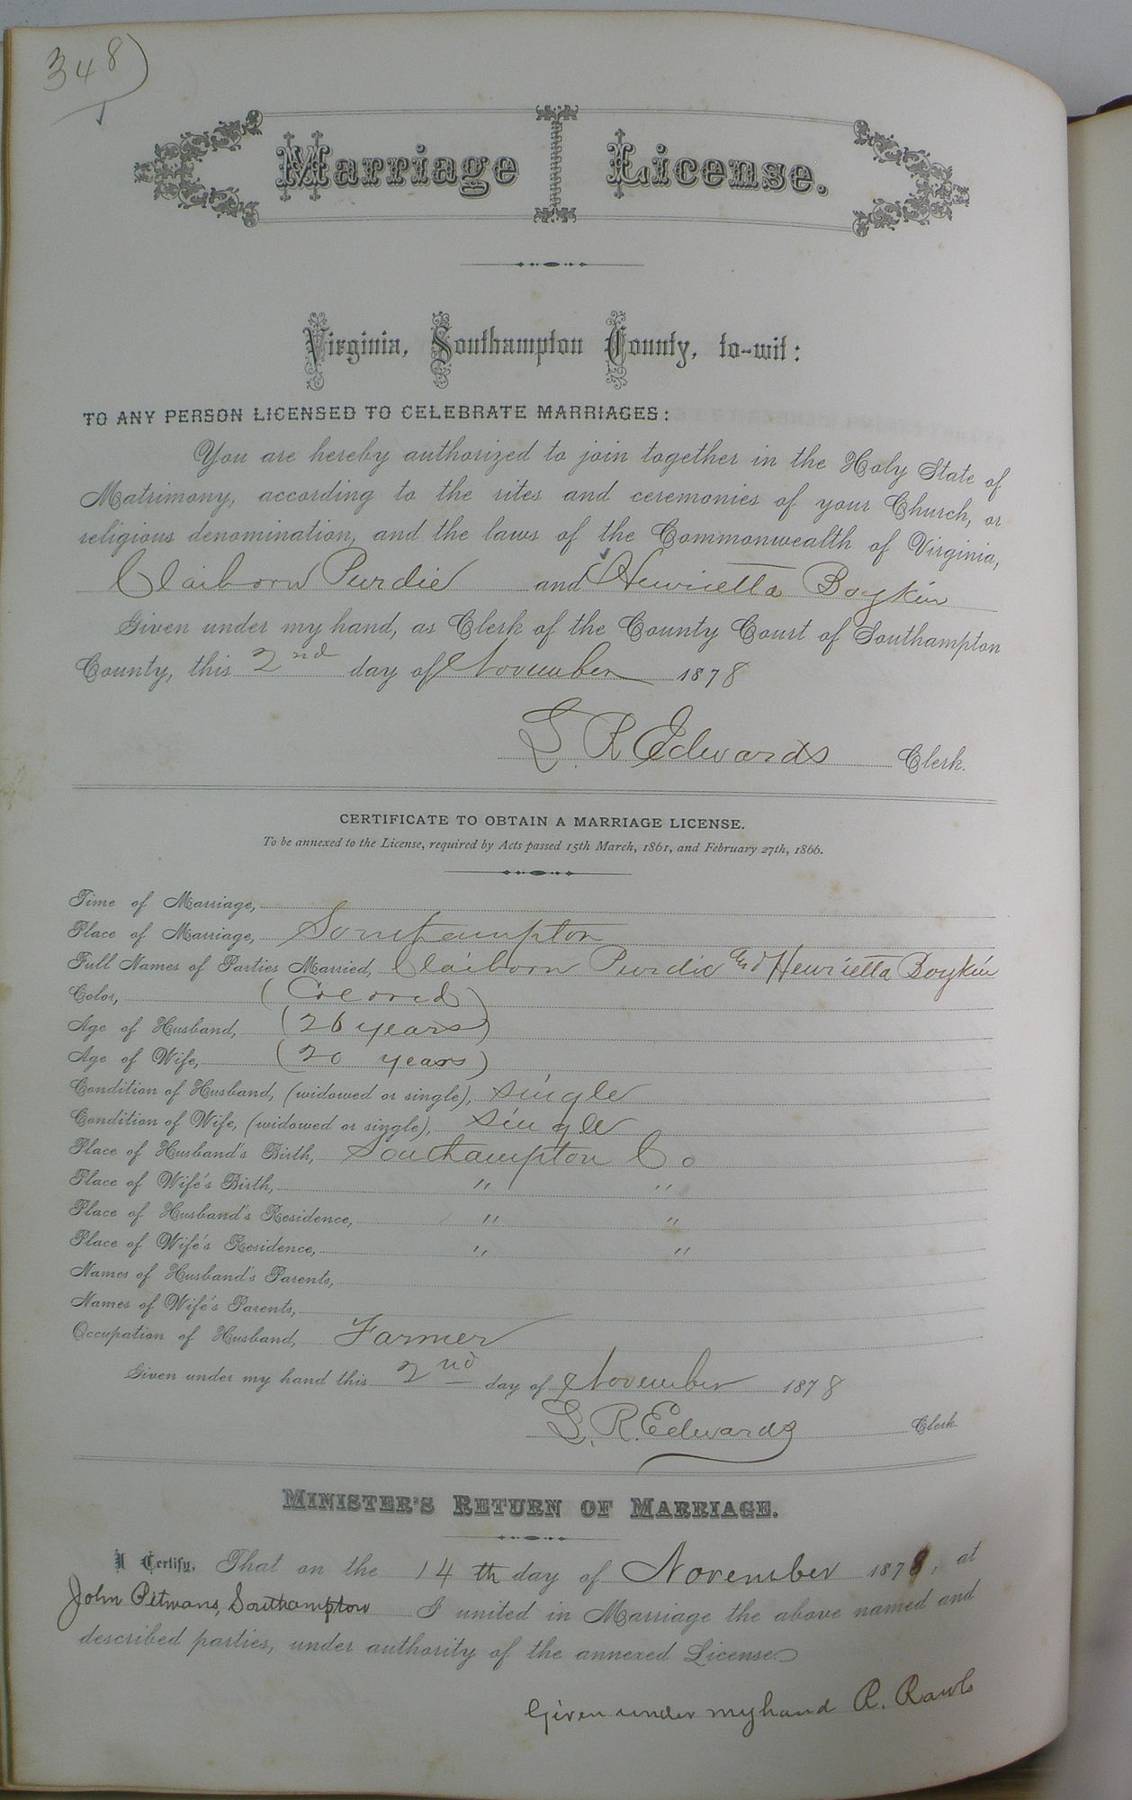 348)
Marriage License.
Virginia, Southampton County, to-wit:
TO ANY PERSON LICENSED TO CELEBRATE MARRIAGES:
You are hereby authorized to join together in the Holy State of
Matrimony, according to the rites and ceremonies of your Church, or
religious denomination, and the laws of the Commonwealth of Virginia,
Claiborn Purdie and Henrietta Boykin
Given under my hand, as Clerk of the County Court of Southampton
County, this 2nd day of November 1878
L. R. Edwards Clerk.
CERTIFICATE TO OBTAIN A MARRIAGE LICENSE.
To be annexed to the License, required by Acts passed 15th March, 1861, and February 27th, 1866.
Time of Marriage,
Place of Marriage, Southampton
Full Names of Parties Married, Claiborn Purdie and Henrietta Boykin
Color, (Colored)
Age of Husband, (26 years)
Age of Wife, (20 years)
Condition of Husband, (widowed or single), single
Condition of Wife, (widowed or single), single
Place of Husband's Birth, Southampton Co
Place of Wife's Birth, " "
Place of Husband's Residence, " "
Place of Wife's Residence, " "
Names of Husband's Parents,
Names of Wife's Parents,
Occupation of Husband, Farmer
Given under my hand this 2nd day of November 1878
L. R. Edwards Clerk
MINISTER'S RETURN OF MARRIAGE.
I Certify, That on the 14th day of November 1878, at
John Pitmans, Southampton I united in Marriage the above named and
described parties, under authority of the annexed License
Given under my hand R. Rawls